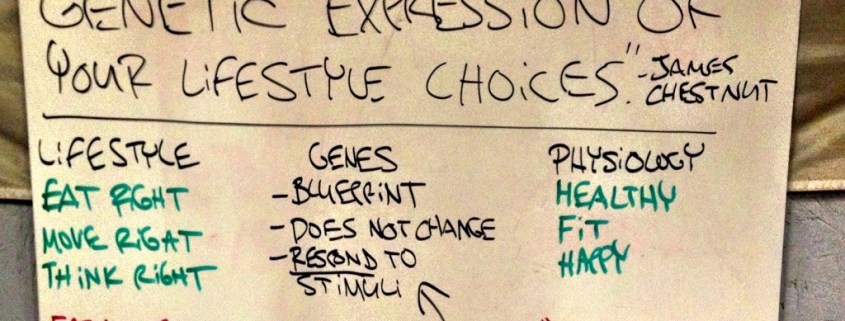 GENETIC EXPRESSION OF
YOUR LIFESTYLE CHOICES." - JAMES CHESTNUT
LIFESTYLE GENES PHYSIOLOGY
EAT RIGHT - BLUEPRINT HEALTHY
MOVE RIGHT - DOES NOT CHANGE FIT
THINK RIGHT - RESPOND TO STIMULI HAPPY